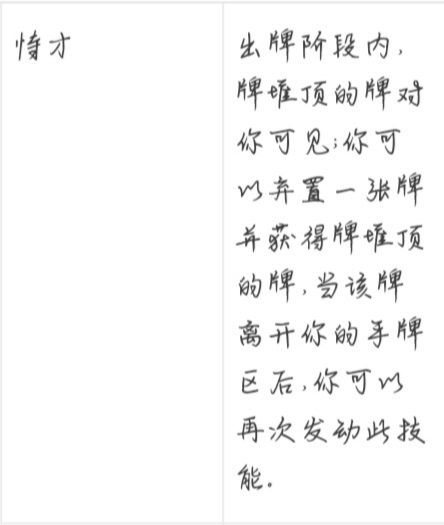 恃才
出牌阶段内，
牌堆顶的牌对
你可见；你可
以弃置一张牌
并获得牌堆顶
的牌，当该牌
离开你的手牌
区后，你可以
再次发动此技
能。